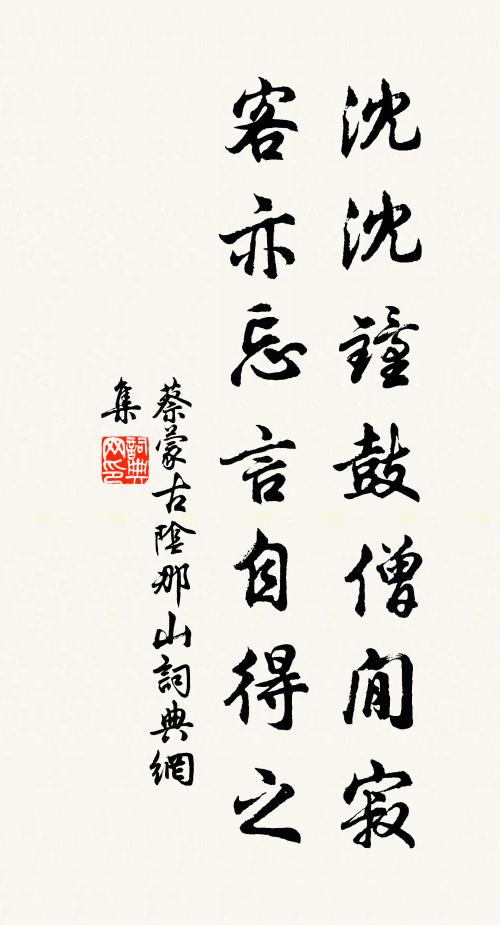 沈沈鐘鼓僧閒寂
客亦忘言自得之
蔡蒙古陰那山詞典網
集
詞典
网印